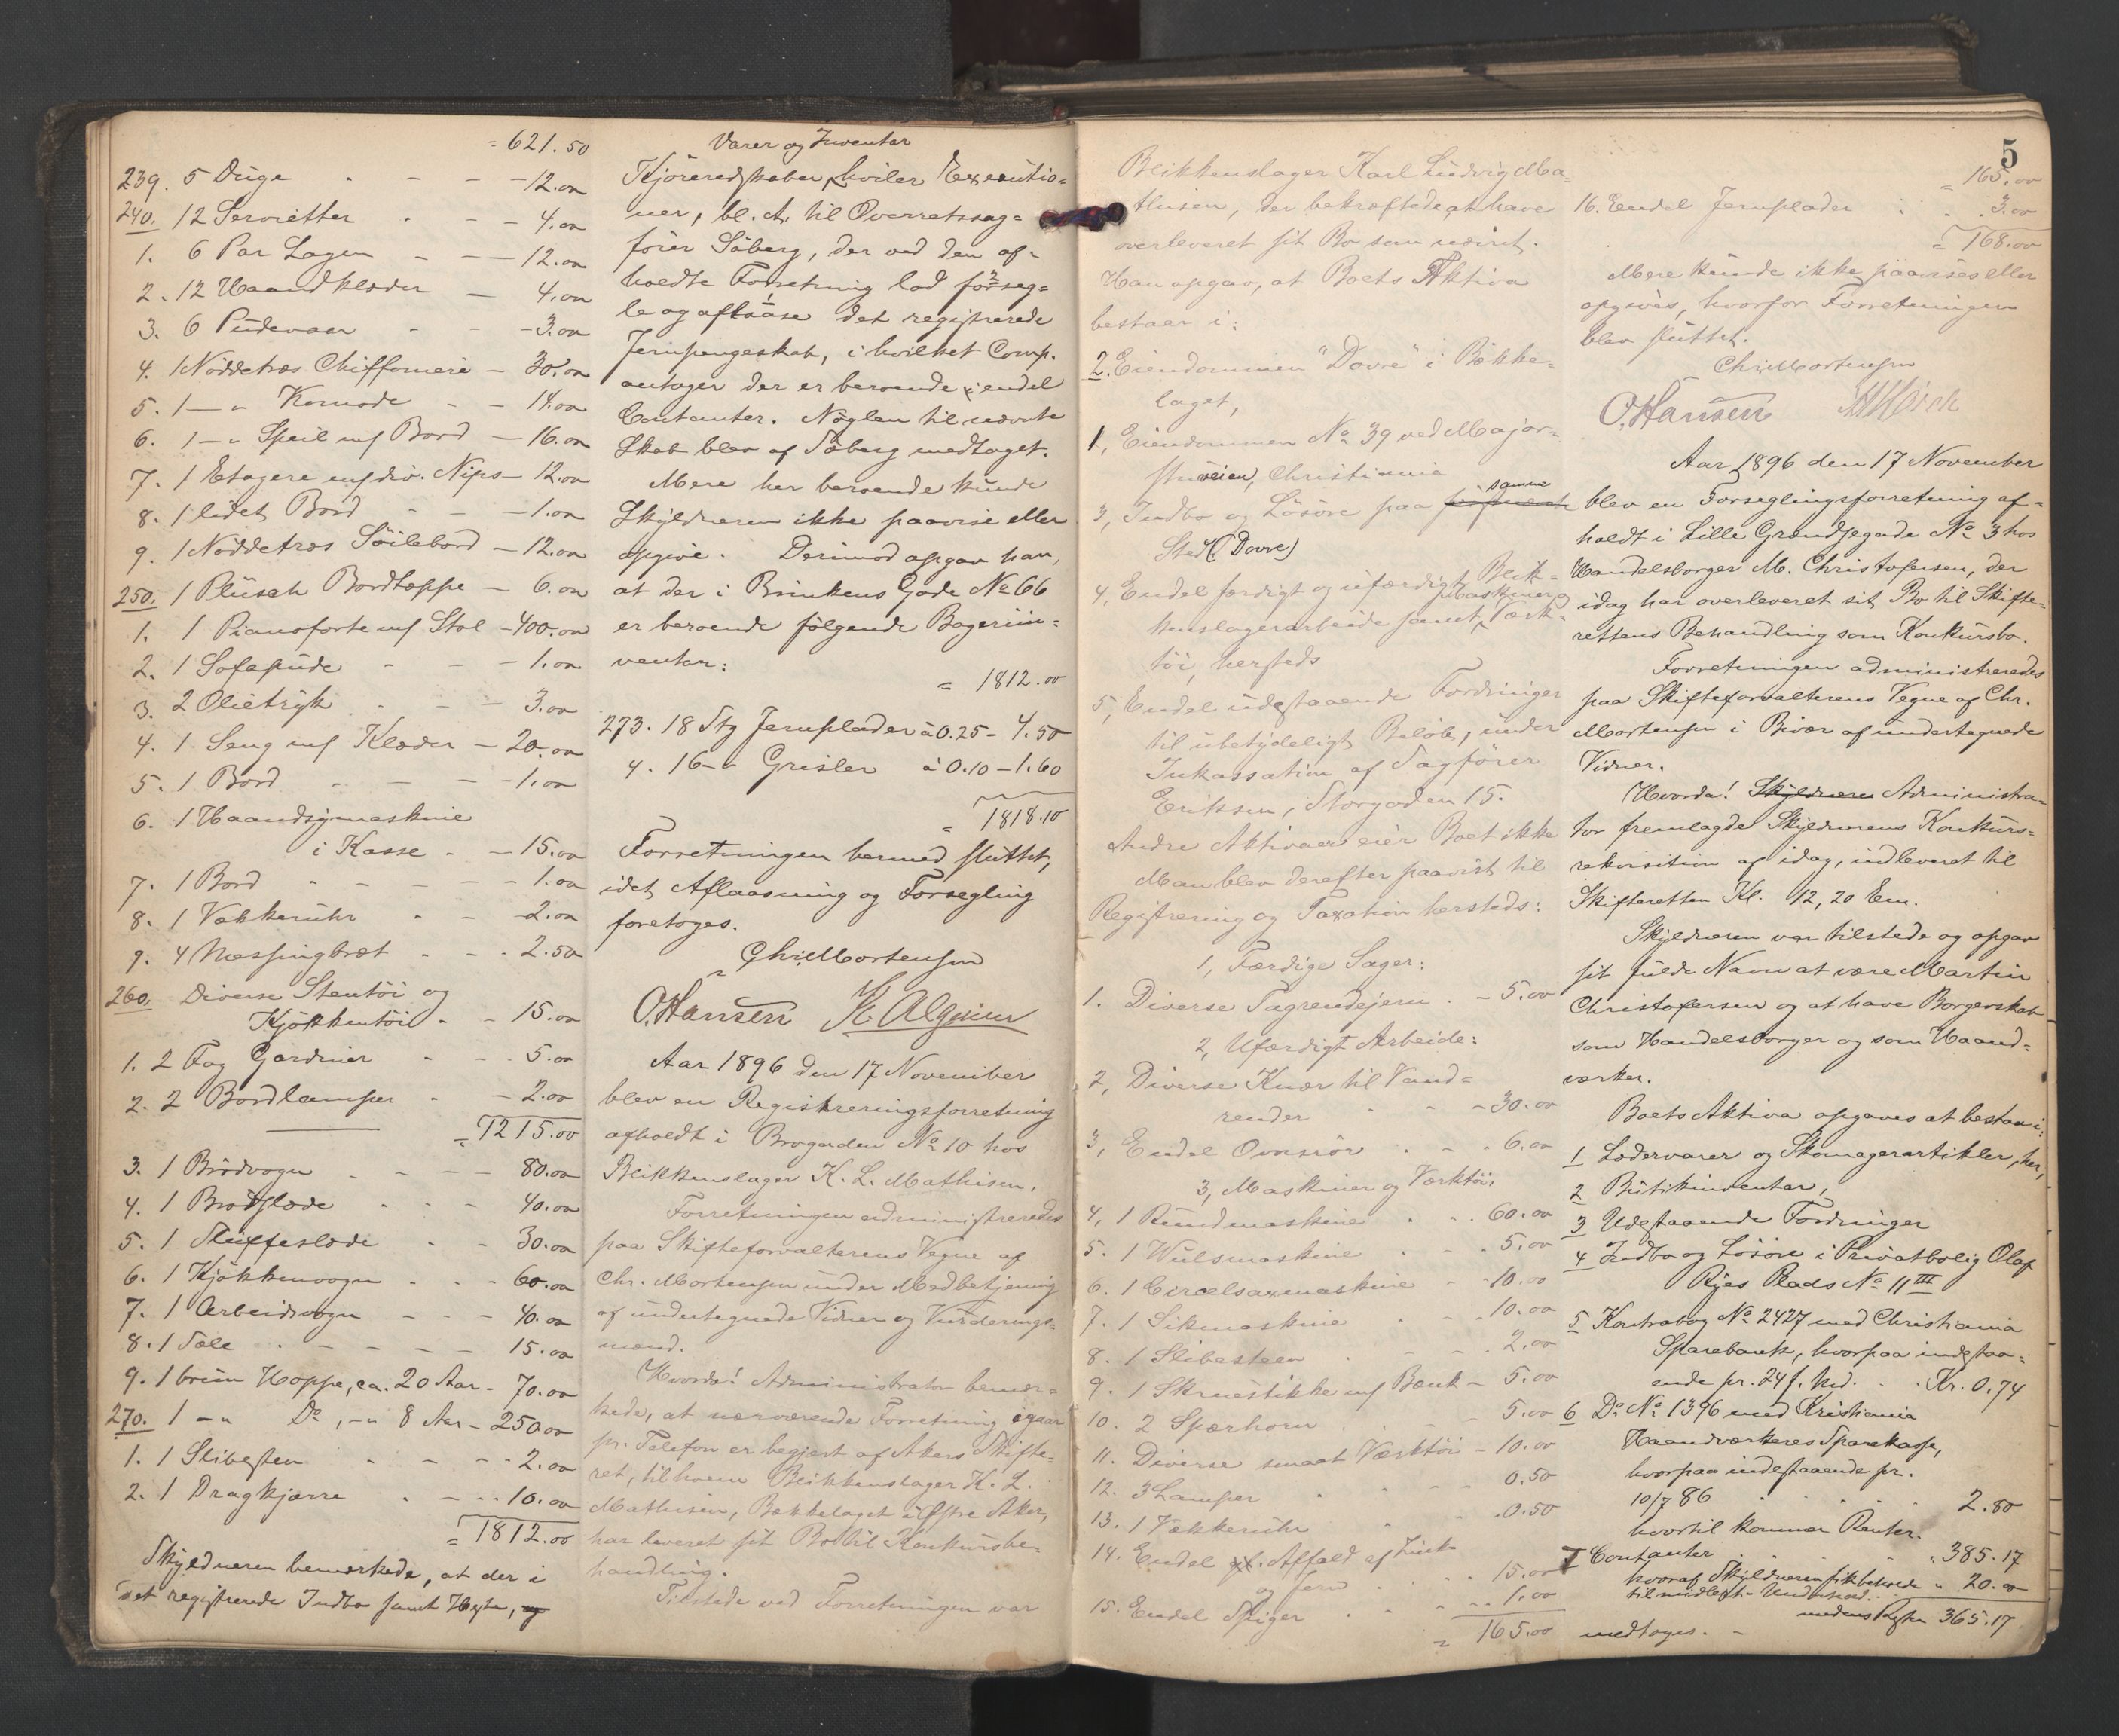 = 621.50
239. 5 Duge - - - 12.00
240. 12 Servietter - - 4.00
1. 6 Par Lagen - - - 12.00
2. 12 Haandklæder - 4.00
3. 6 Pudevaar - - - 3.00
4. 1 Nöddetræs Chiffoniere - 30.00
5. 1 —„ Komode - - 14.00
6. 1 —„ Speil m/ Bord - 16.00
7. 1 Etagere m/ div. Nips - 12.00
8. 1 lidet Bord - - - 1.00
9. 1 Nöddetræs Söilebord - 12.00
250. 1 Plüsch Bordtæppe - 6.00
1. 1 Pianoforte m/ Stol - 400.00
2. 1 Sofapude - - - 1.00
3. 2 Olietryk - - - 3.00
4. 1 Seng m/ Klæder - 20.00
5. 1 Bord - - - - 1.00
6. 1 Haandsymaskine
i Kasse - - 15.00
7. 1 Bord - - - - 1.00
8. 1 Vækkeruhr - - 2.00
9. 4 Messingbræt - - 2.50
260. Diverse Stentöi og
Kjökkentöi - - 15.00
1. 2 Fag Gardiner - - 5.00
2. 2 Bordlamper - - 2.00
= 1215.00
3. 1 Brödvogn - - - 80.00
4. 1 Brödslæde - - - 40.00
5. 1 Sluffeslæde - - 30.00
6. 1 Kjökkenvogn - - - 60.00
7. 1 Arbeidsvogn - - - 40.00
8. 1 Sæle - - - - 15.00
9. 1 brun Hoppe, ca. 20 Aar - 70.00
270. 1 —„ Do, —„ 8 Aar - 250.00
1. 1 Slibesten - - - 2.00
2. 1 Dragkjærre - - - 10.00
= 1812.00
Skyldneren bemærkede, at der i
det registrerede Indbo samt Heste, og
Varer og Inventar
Kjöreredskaber, hviler Executio-
ner, bl. A. til Overretssag-
förer Söberg, der ved den af-
holdte Forretning lod forseg-
le og aflaase det registrerede
Jernpengeskab, i hvilket Comp.
antager der er beroende endel
Contanter. Nöglen til nævnte
Skab blev af Söberg medtaget.
Mere her beroende kunde
Skyldneren ikke paavise eller
opgive. Derimod opgav han,
at der i Brinkens Gade No 66
er beroende følgende Bageriin-
ventar:
= 1812.00
273. 18 Stg Jernplader à 0.25 - 4.50
4. 16 —„ Grisler à 0.10 - 1.60
= 1818.10
Forretningen hermed sluttet,
idet Aflaasning og Forsegling
foretoges.
Chr. Mortensen
O. Hansen
Aar 1896 den 17 November
blev en Registreringsforretning
afholdt i Brogaden No 10 hos
Blikkenslager K. L. Mathisen.
Forretningen administreredes
paa Skifteforvalterens Vegne af
Chr. Mortensen under Medbetjening
af undertegnede Vidner og Vurderings-
mænd.
Hvorda! Administrator bemær-
kede, at nærværende Forretning igaar
pr. Telefon er begjert af Akers Skifte-
ret, til hvem Blikkenslager K. L.
Mathisen, Bækkelaget i Østre Aker,
har leveret sit Bo til Konkursbe-
handling.
Tilstede ved Forretningen var
5
Blikkenslager Karl Ludvig Ma-
thisen, der bekræftede at have
overleveret sit Bo som nævnt.
Han opgav, at Boets Aktiva
bestaar i:
2. Eiendommen "Dovre" i Bække-
laget,
1, Eiendommen No 39 ved Major-
stuveien, Christiania
3, Indbo og Lösöre paa samme
Sted (Dovre)
4, Endel færdigt og ufærdigt Blik-
kenslagerarbeide samt Maskiner og Værk-
töi, hersteds
5, Endel udestaaende Fordringer
til ubetydeligt Belöb, under
Inkassation af Sagförer
Eriksen, Storgaden 15.
Andre Aktivaer eier Boet ikke
Man blev derefter paavist til
Registrering og Taxation hersteds:
1, Færdige Sager:
1. Diverse Tagrendejern . - 5.00
2, Ufærdigt Arbeide:
2, Diverse Knær til Vand-
render - - - 30.00
3, Endel Ovnsrör . - . 6.00
3, Maskiner og Værktöi:
4, 1 Rundmaskine . . . 60.00
5. 1 Wulsmaskine . . . 5.00
6. 1 Circelsaxmaskine - - 10.00
7. 1 Sikmaskine . . 10.00
8. 1 Slibesteen . - - 2.00
9. 1 Skruestikke m/ Bænk - 5.00
10. 2 Spærhorn . . . 5.00
11. Diverse smaat Værktöi - 10.00
12. 3 Lamper . . . 0.50
13. 1 Vækkeruhr . . . 0.50
14. Endel Affald af Zink
og Jern . . . 15.00
15. Endel Spiger . . . 1.00
= 165.00
= 165.00
16. Endel Jernplader . . . 3.00
= 168.00
Mere kunde ikke paavises eller
opgives, hvorfor Forretningen
blev sluttet.
Chr. Mortensen
O. Hansen
Aar 1896 den 17 November
blev en Forseglingsforretning af-
holdt i Lille Grændsegade No 3 hos
Handelsborger M. Christofersen, der
idag har overleveret sit Bo til Skifte-
rettens Behandling som Konkursbo.
Forretningen administreredes
paa Skifteforvalterens Vegne af Chr.
Mortensen i Bivær af undertegnede
Vidner.
Hvorda! Skyldneren Administra-
tor fremlagde Skyldnerens Konkurs-
rekvisition af idag, indleveret til
Skifteretten Kl. 12,20 Em.
Skyldneren var tilstede og opgav
sit fulde Navn at være Martin
Christofersen og at have Borgerskab
som Handelsborger og som Haand-
værker.
Boets Aktiva opgaves at bestaa i:
1 Lædervarer og Skomagerartikler, her,
2 Butikinventar,
3 Udestaaende Fordringer
4 Indbo og Lösöre i Privatbolig Olaf
Ryes Plads No 11 III
5 Kontrabog No 2427 med Christiania
Sparebank, hvorpaa indestaa-
ende pr. 24 f. Md. . . Kr. 0,74
6 Do No 1396 med Kristiania
Haandværkeres Sparekasse,
hvorpaa indestaaende pr.
10/7 86 . . . . 2.80
hvortil kommer Renter.
7 Contanter . . . 385.17
hvoraf Skyldneren fik beholde „ 20.00
til midlert. Underhold.
medens Resten 365.17
medtoges. -